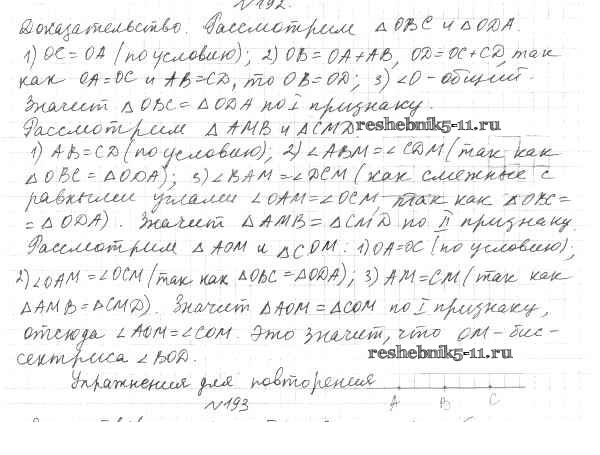 №192.
Доказательство. Рассмотрим △OBC и △ODA.
1) OC=OA (по условию); 2) OB=OA+AB, OD=OC+CD, так
как OA=OC и AB=CD, то OB=OD; 3) ∠O-общий.
Значит △OBC=△ODA по I признаку.
Рассмотрим △AMB и △CMD
reshebnik5-11.ru
1) AB=CD (по условию); 2) ∠ABM=∠CDM (так как
△OBC=△ODA); 3) ∠BAM=∠DCM (как смежные с
равными углами ∠OAM=∠OCM, так как △OBC=
=△ODA). Значит △AMB=△CMD по II признаку.
Рассмотрим △AOM и △COM: 1) OA=OC (по условию);
2) ∠OAM=∠OCM (так как △OBC=△ODA); 3) AM=CM (так как
△AMB=△CMD). Значит △AOM=△COM по I признаку,
отсюда ∠AOM=∠COM. Это значит, что OM-бис-
сектриса ∠BOD.
reshebnik5-11.ru
Упражнения для повторения
№193
A B C